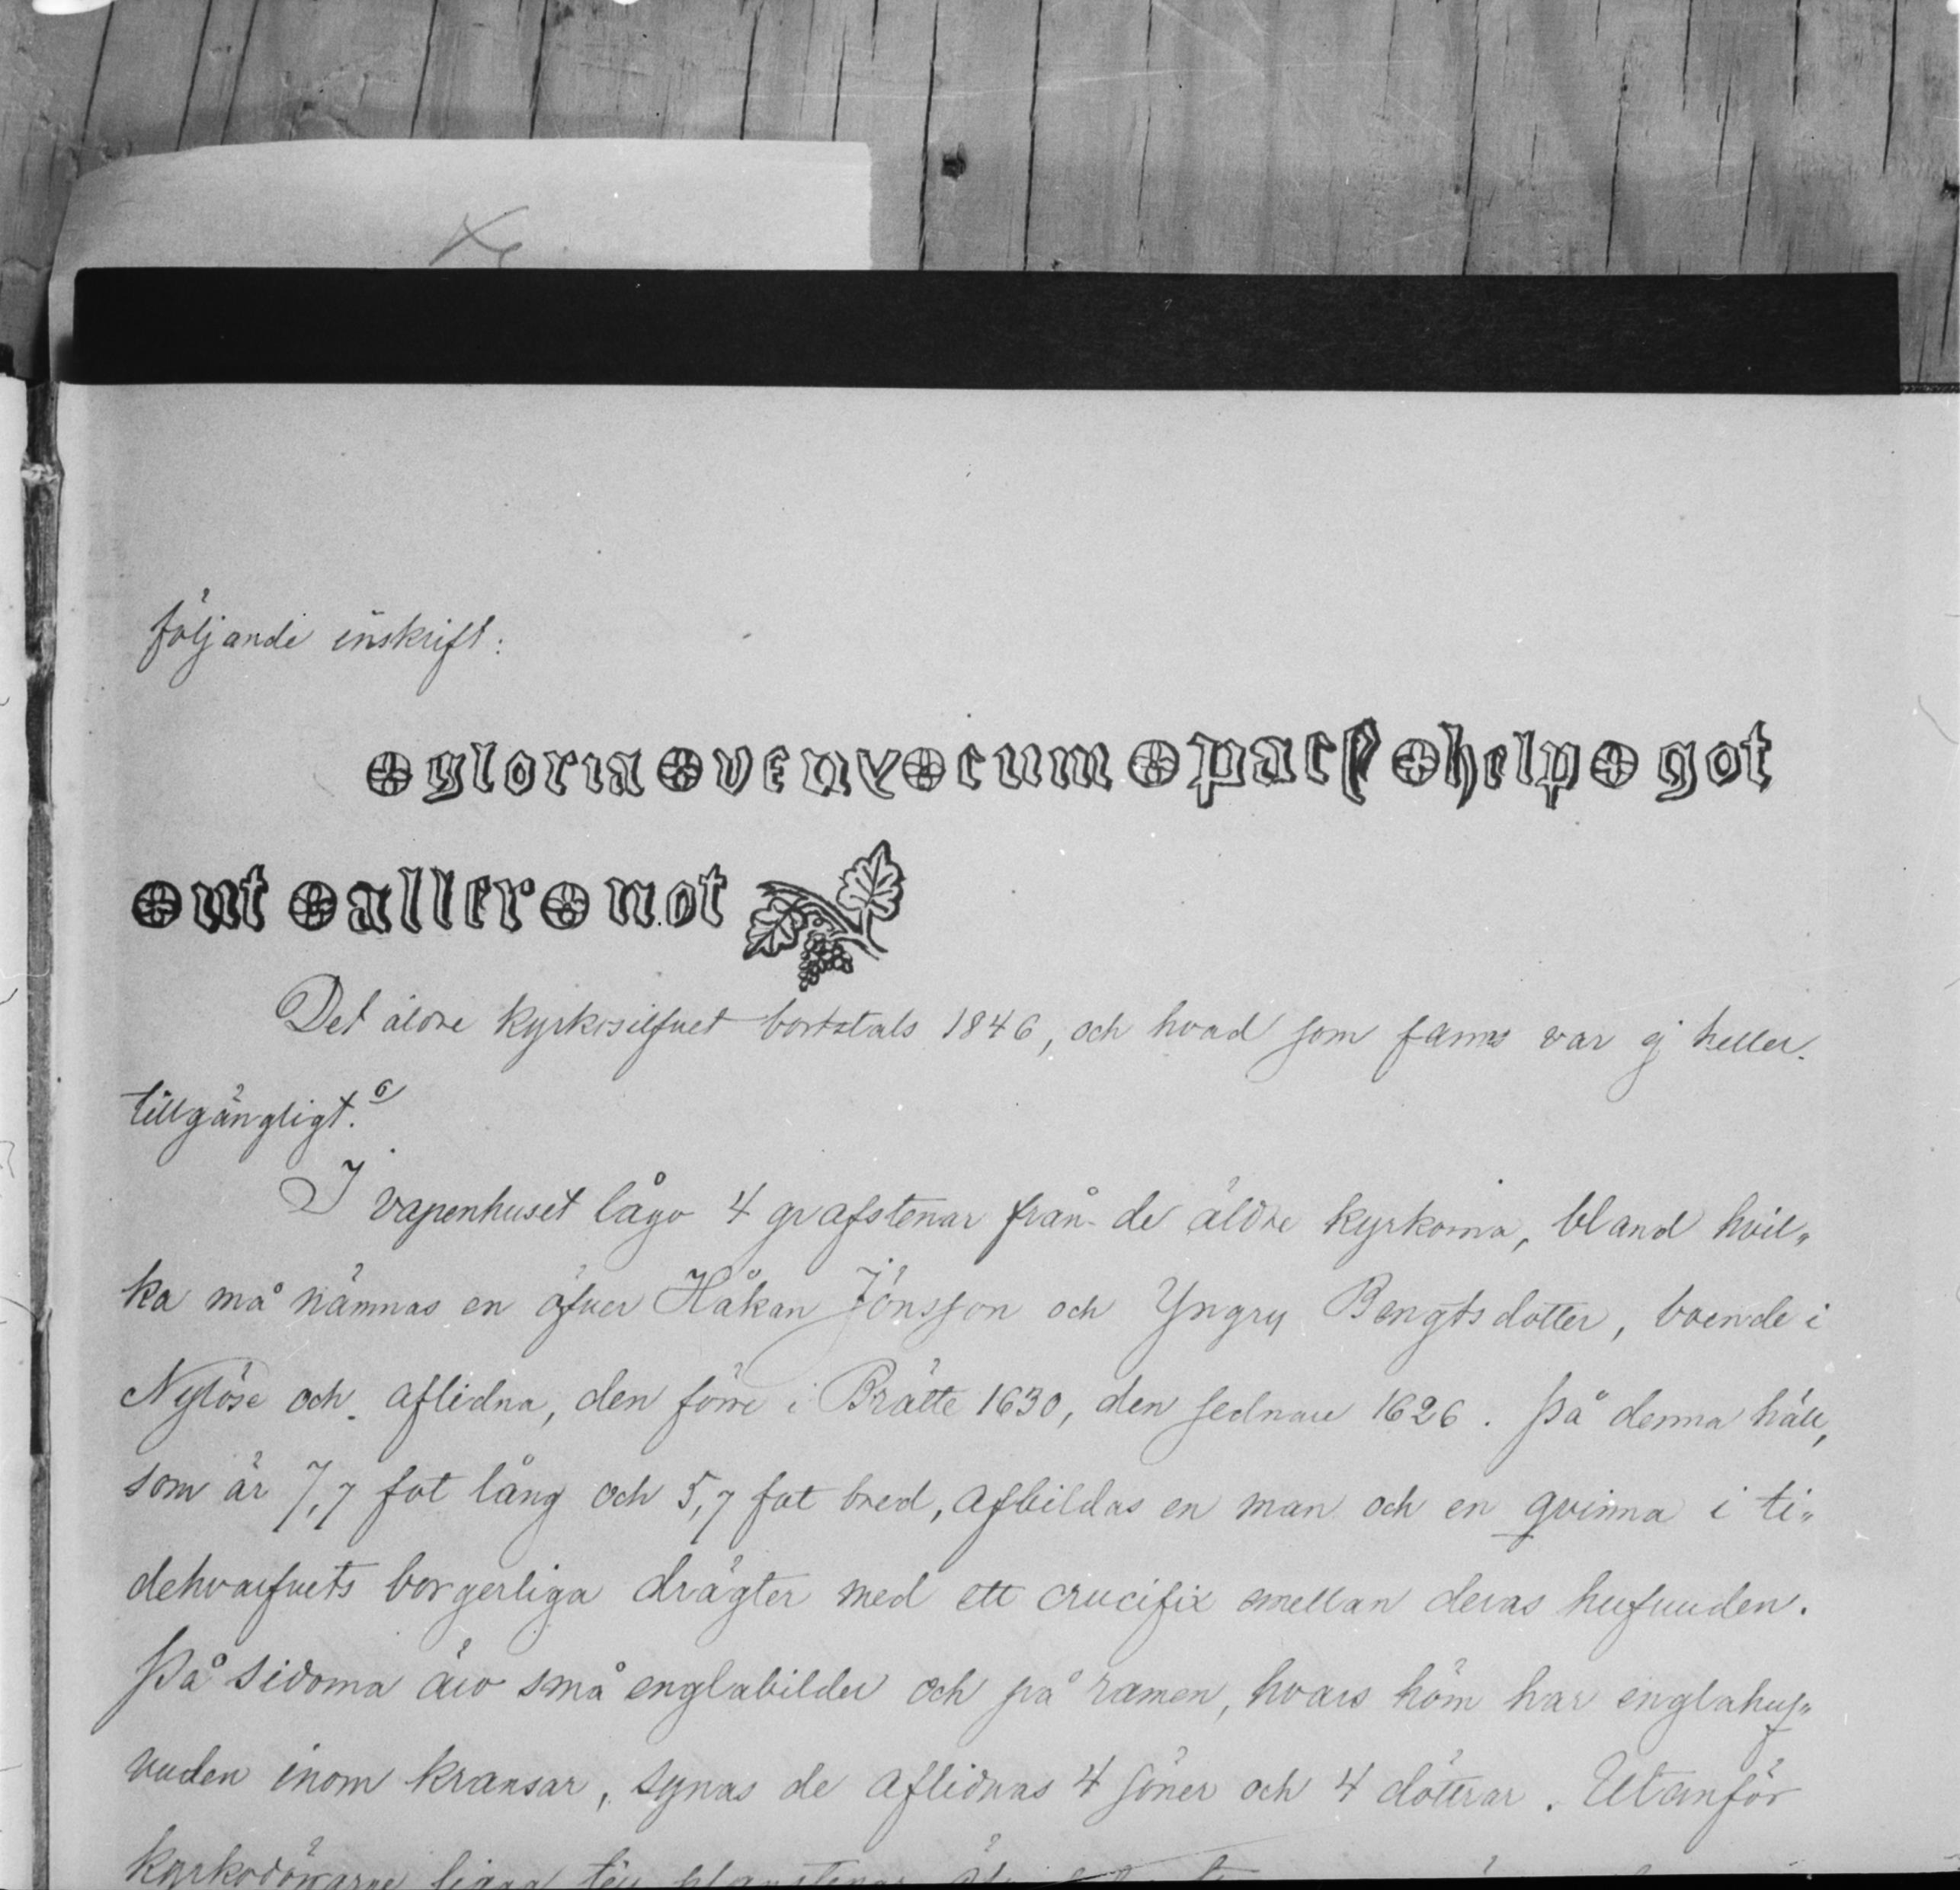 följande inskrift:
gloria veny cum pace help got
ut aller not
Det äldre kyrkosilfvet bortstals 1846, och hvad som fanns var ej heller
tillgängligt.
I vapenhuset lågo 4 grafstenar från de äldre kyrkorna, bland hvil„
ka må nämnas en öfver Håkan Jönsson och Yngry Bengtsdotter, boende i
Nylöse och aflidna, den förre i Brätte 1630, den sednare 1626. På denna häll,
som är 7,7 fot lång och 5,7 fot bred, afbildas en man och en qvinna i ti„
dehvarfvets borgerliga drägter med ett crucifix emellan deras hufvuden.
På sidorna äro små englabilder och på ramen, hvars hörn har englahuf„
vuden inom kransar, synas de aflidnas 4 söner och 4 döttrar. Utanför
kyrkodörrarne ligga